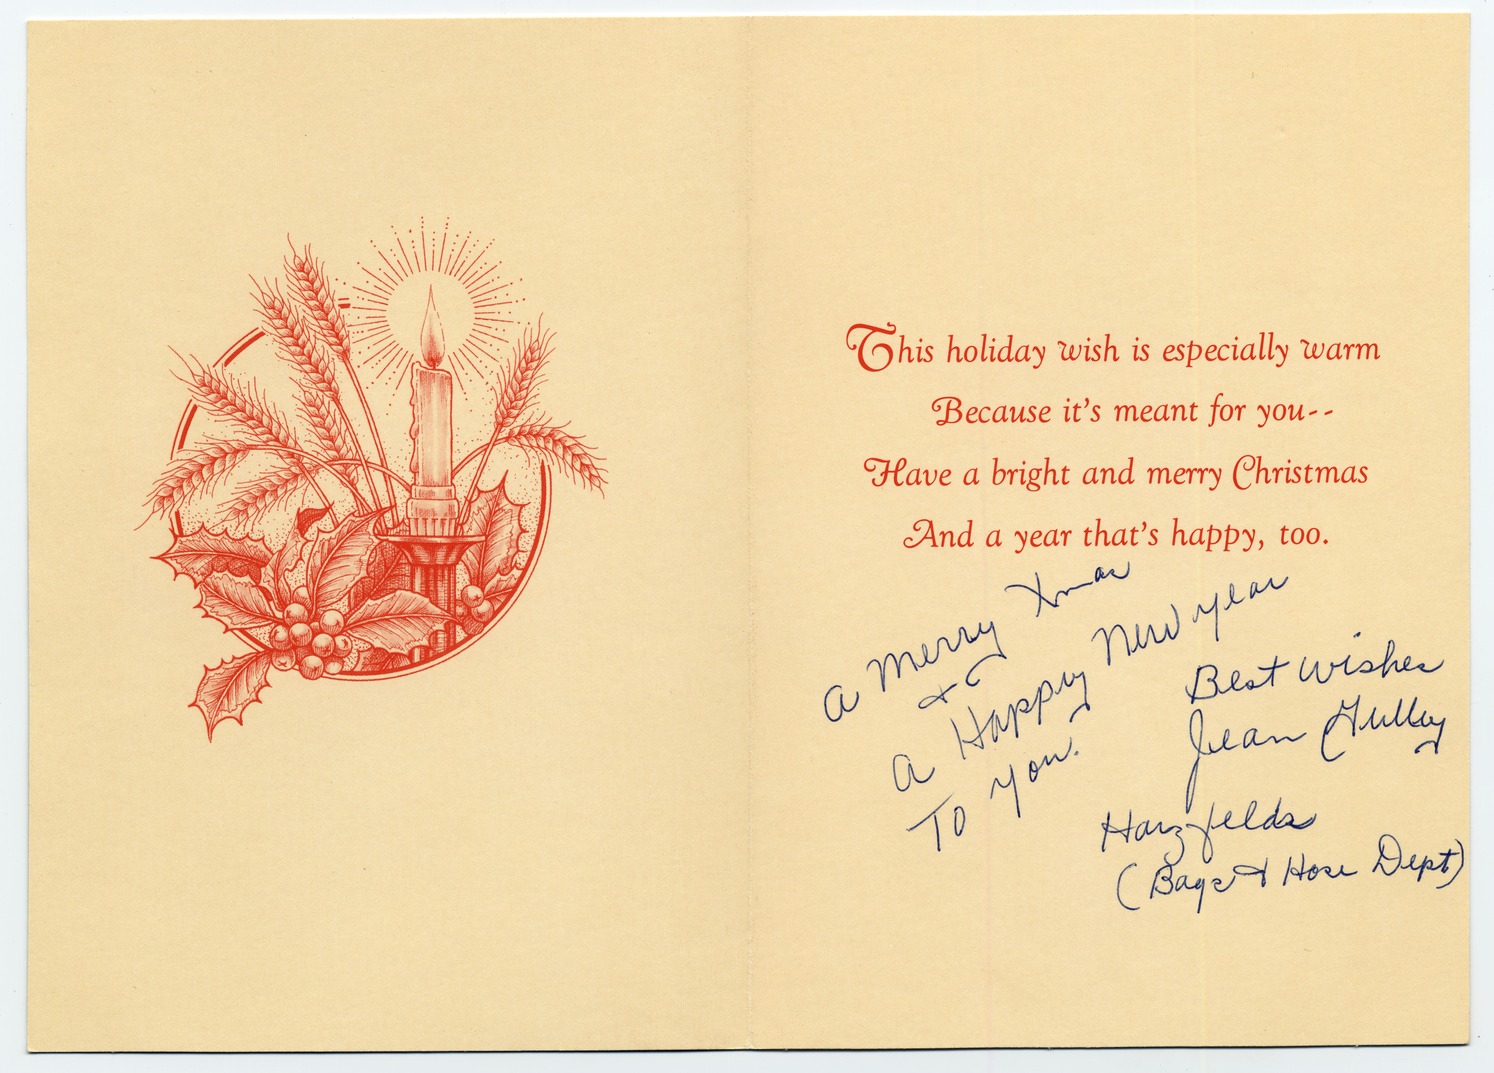 This holiday wish is especially warm
Because it's meant for you--
Have a bright and merry Christmas
And a year that's happy, too.
A Merry Xmas
&
A Happy New Year
To You.
Best Wishes
Jean Gulley
Harzfelds
(Bags & Hose Dept)